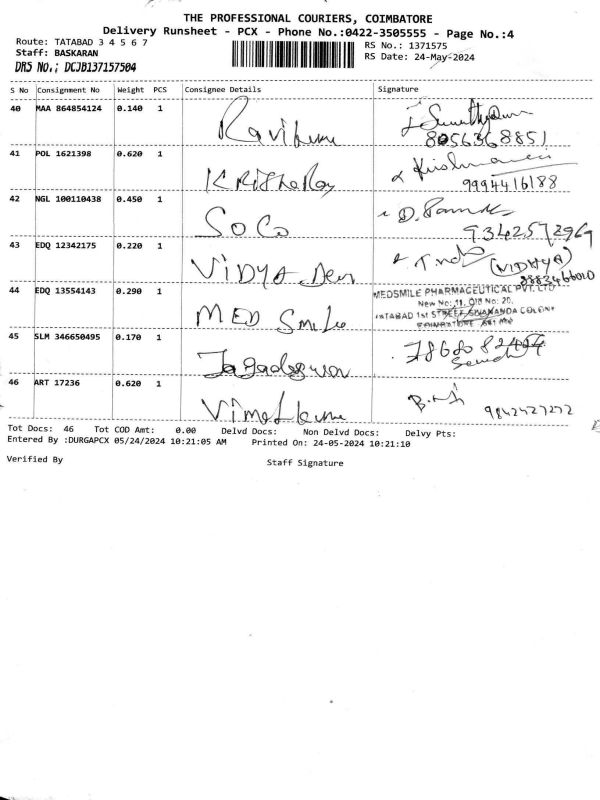 THE PROFESSIONAL COURIERS, COIMBATORE
Delivery Runsheet - PCX - Phone No.:0422-3505555 - Page No.:4
Route: TATABAD 3 4 5 6 7
RS No.: 1371575
Staff: BASKARAN
RS Date: 24-May-2024
DRS NO.; DCJB137157504
S No Consignment No Weight PCS Consignee Details Signature
40 MAA 864854124 0.140 1
8056368851
41 POL 1621398 0.620 1
9994416188
42 NGL 100110438 0.450 1 SoCo
9342572969
43 EDQ 12342175 0.220 1 ViDYA Dev
(VIDHYA)
44 EDQ 13554143 0.290 1 MED Smile
MEDSMILE PHARMACEUTICAL PVT. LTD
New No: 11, Old No: 20,
TATABAD 1st STREET, SIVANANDA COLONY
45 SLM 346650495 0.170 1
46 ART 17236 0.620 1
9842427272
Tot Docs: 46 Tot COD Amt: 0.00 Delvd Docs: Non Delvd Docs: Delvy Pts:
Entered By :DURGAPCX 05/24/2024 10:21:05 AM Printed On: 24-05-2024 10:21:10
Verified By Staff Signature